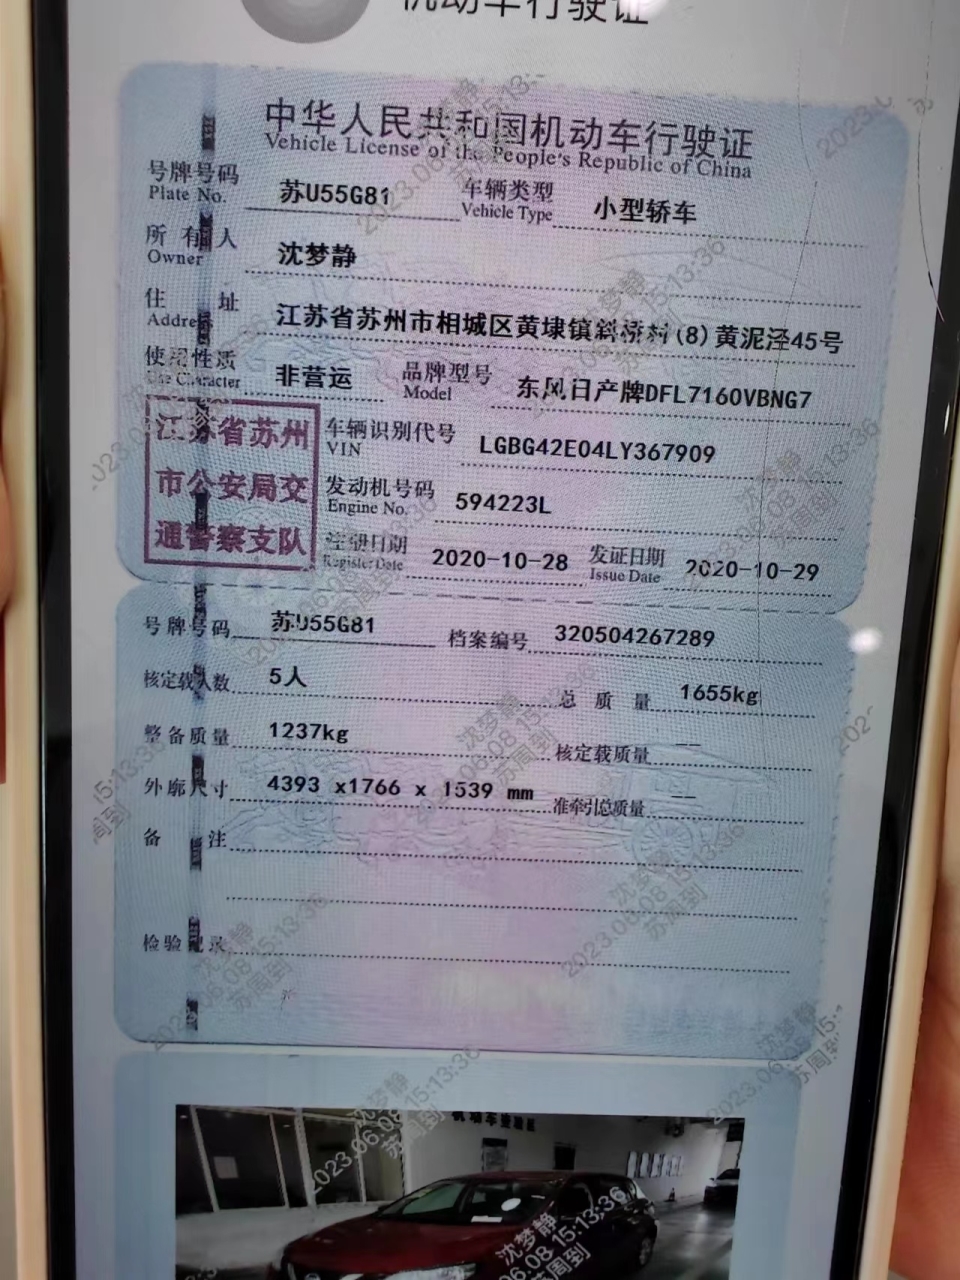 机动车行驶证
中华人民共和国机动车行驶证
Vehicle License of the People's Republic of China
号牌号码 苏U55G81 车辆类型 小型轿车
Plate No. Vehicle Type
所有人 沈梦静
Owner
住址 江苏省苏州市相城区黄埭镇斜桥村(8)黄泥泾45号
Address
使用性质 非营运 品牌型号 东风日产牌DFL7160VBNG7
Use Character Model
江苏省苏州
市公安局交
通警察支队
车辆识别代号 LGBG42E04LY367909
VIN
发动机号码 594223L
Engine No.
注册日期 2020-10-28 发证日期 2020-10-29
Register Date Issue Date
号牌号码 苏U55G81 档案编号 320504267289
核定载人数 5人 总质量 1655kg
整备质量 1237kg 核定载质量 --
外廓尺寸 4393 x1766 x 1539 mm 准牵引总质量 --
备注
检验记录
沈梦静
2023.06.08 15:13:36
苏周到